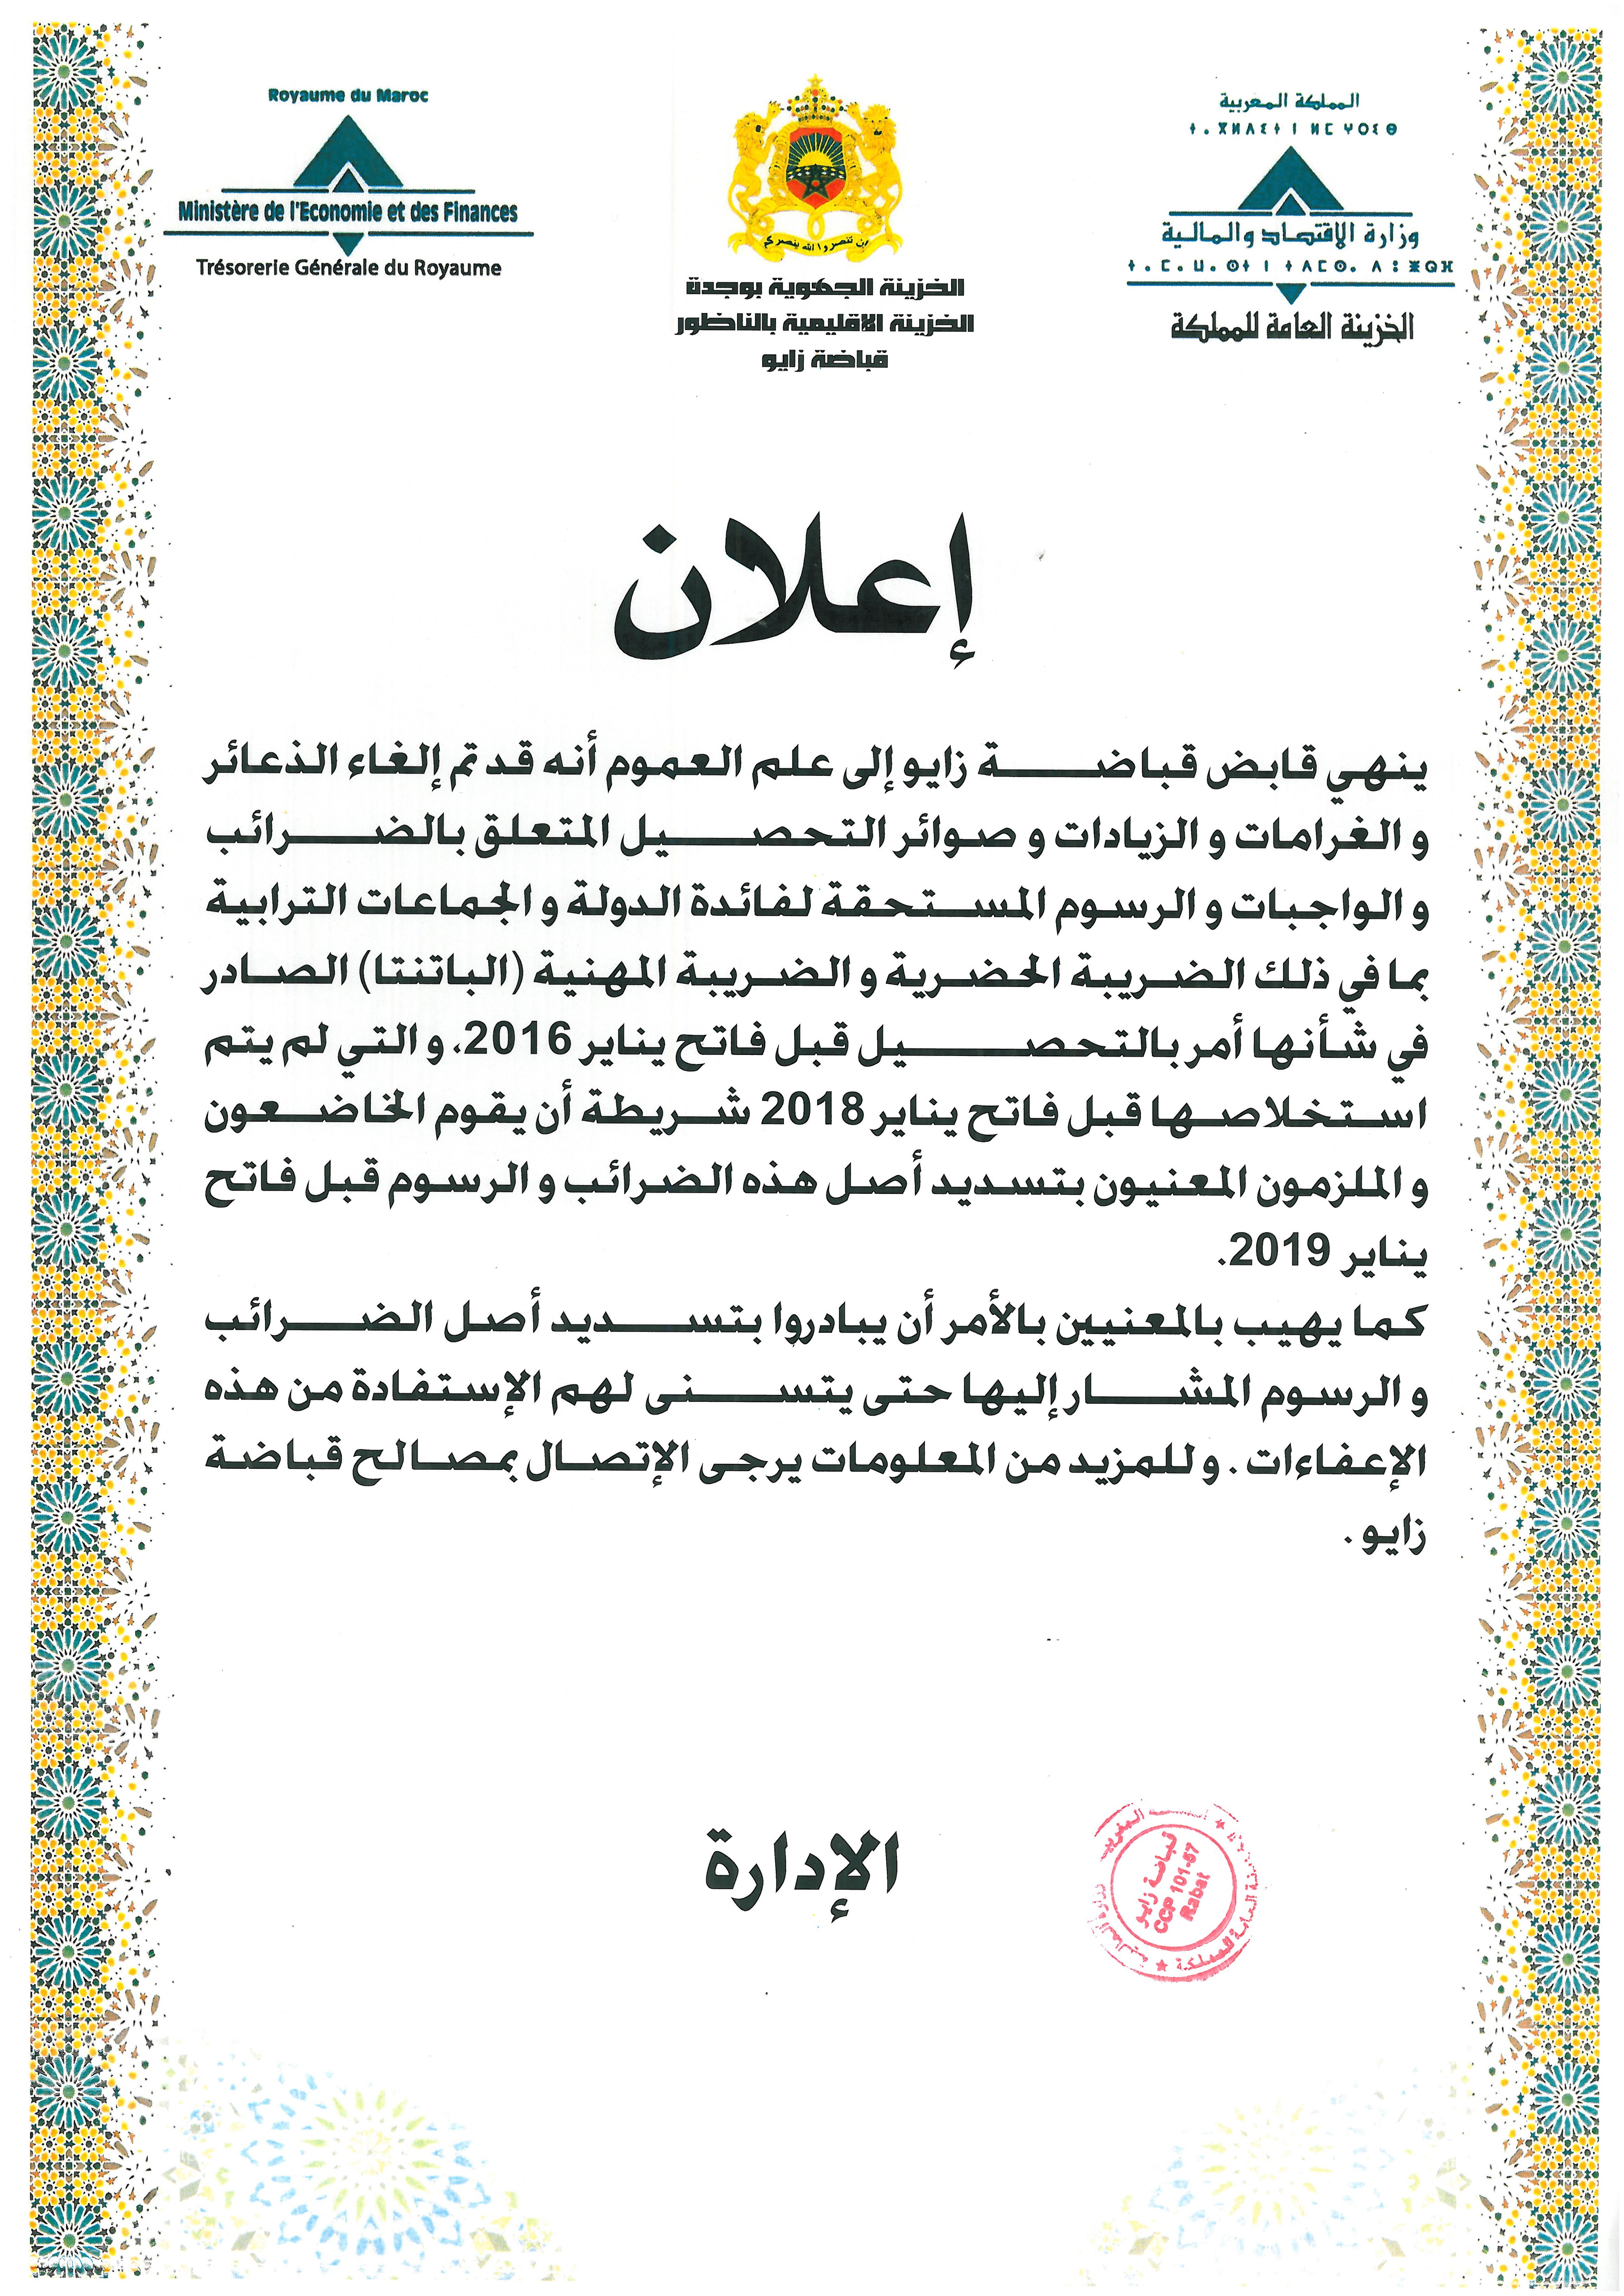 Royaume du Maroc
Ministère de l'Economie et des Finances
Trésorerie Générale du Royaume
إن تنصروا الله ينصركم
الخزينة الجهوية بوجدة
الخزينة الاقليمية بالناظور
قباضة زايو
المملكة المغربية
ⵜ.ⴳⵍⴷⵉⵜ ⵏ ⵍⵎⵖⵔⵉⴱ
وزارة الاقتصاد والمالية
ⵜ.ⵎ.ⵡ.ⵙⵜ ⵏ ⵜⴷⵎⵙ. ⴷ ⵓⵥⵕⴼ
الخزينة العامة للمملكة
إعلان
ينهي قابض قباضة زايو إلى علم العموم أنه قد تم إلغاء الذعائر
و الغرامات و الزيادات و صوائر التحصيل المتعلق بالضرائب
و الواجبات و الرسوم المستحقة لفائدة الدولة و الجماعات الترابية
بما في ذلك الضريبة الحضرية و الضريبة المهنية (الباتنتا) الصادر
في شأنها أمر بالتحصيل قبل فاتح يناير 2016، و التي لم يتم
استخلاصها قبل فاتح يناير 2018 شريطة أن يقوم الخاضعون
و الملزمون المعنيون بتسديد أصل هذه الضرائب و الرسوم قبل فاتح
يناير 2019.
كما يهيب بالمعنيين بالأمر أن يبادروا بتسديد أصل الضرائب
و الرسوم المشار إليها حتى يتسنى لهم الإستفادة من هذه
الإعفاءات . و للمزيد من المعلومات يرجى الإتصال بمصالح قباضة
زايو .
الإدارة
قباضة زايو
CCP 101-57
Rabat
وزارة المالية
العامة للمملكة